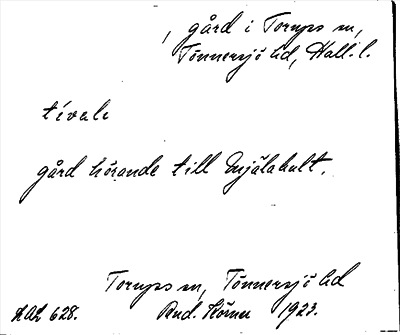 , gård i Torups sn,
Tönnersjö hd, Hall. l.
tívalı
gård hörande till Mjälahult.
Torups sn, Tönnersjö hd
LAL 628. Rud. 1923.